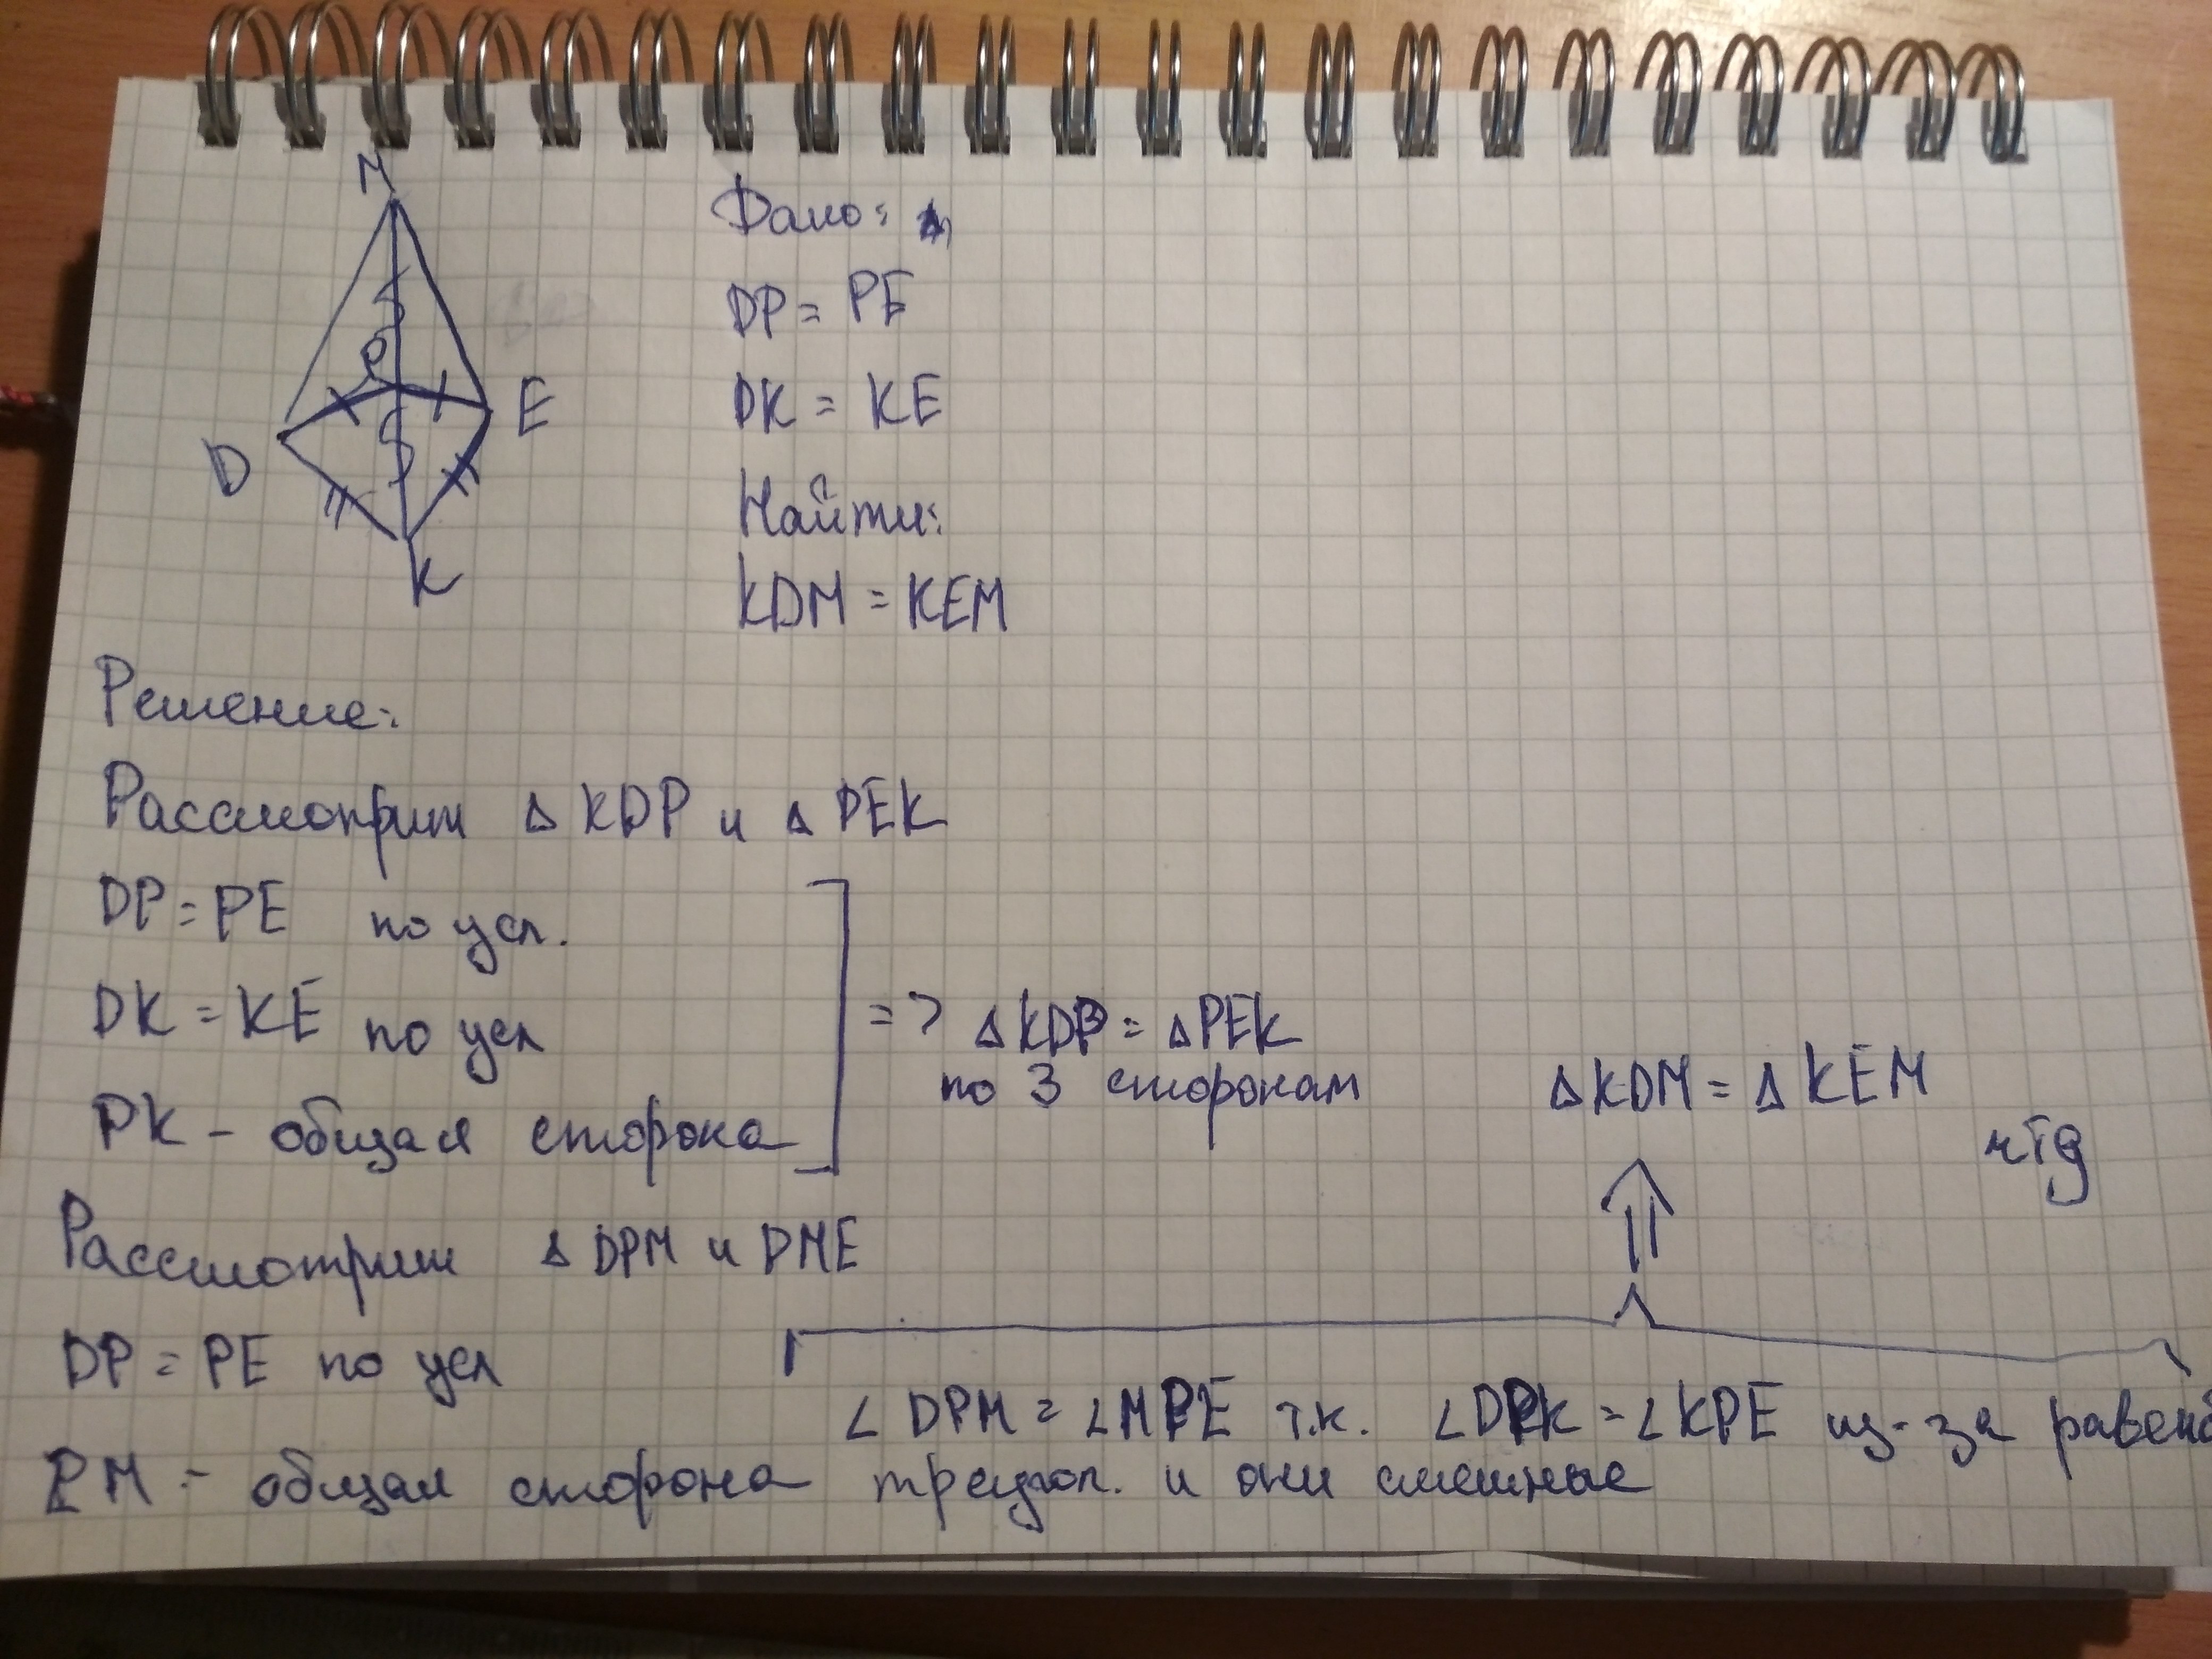 M
P
E
D
K
Дано:
DP = PE
DK = KE
Найти:
KDM = KEM
Решение:
Рассмотрим Δ KDP и Δ PEK
DP = PE по усл.
DK = KE по усл
PK - общая сторона
=> ΔKDP = ΔPEK
по 3 сторонам
ΔKDM = ΔKEM
чтд
Рассмотрим Δ DPM и PME
DP = PE по усл
∠DPM = ∠MPE т.к. ∠DPK = ∠KPE из-за равенс
PM - общая сторона треугол. и они смежные